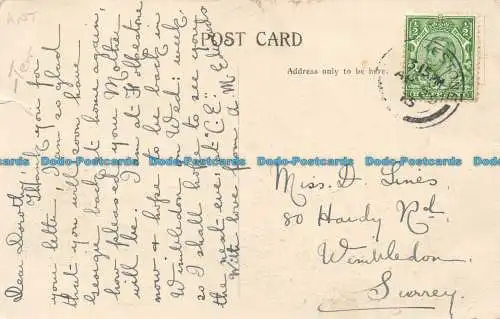 POST CARD
Address only to be here.
Dear Dorothy,
Thank you for
your letter. I am so glad
that you will soon have
George back at home again,
how pleased your Mother
will be. I am at Folkestone
now & hope to be back in
Wimbledon on Wed: week,
so I shall hope to see you
the next eve: at "C.E."
With love from M. Ellis
Miss. D. Lines.
80 Hardy Rd.
Wimbledon.
Surrey.
Donata-Postcards Donata-Postcards Donata-Postcards
1/2 1/2